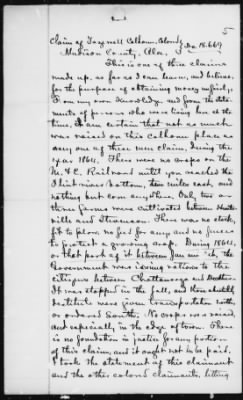 5
Claim of Fagnell Calhoun, Colored
No 18.669
Madison County, Ala.
This is one of three claims
made up, as far as I can learn, and believe,
for the purpose of obtaining money unjustly,
From my own knowledge and from the state-
ments of persons who were living here at the
time, I am certain that not as much
was raised on this Calhoun place as
any one of these men claim, during the
year 1864. There were no crops on the
M. & C. Railroad until you reached the
Flint river bottom, ten miles east, and
nothing but corn any there. Only two or
three farms were cultivated between Hunts-
ville and Stevenson. There was no stock,
fit to plow, no feed for any and no fences
to protect a growing crop. During 1864,
or that part of it between Jan and the
Government was issuing rations to the
citizens between Chattanooga and
It was stopped in the fall, and
destitute were given transportation north,
or ordered South. No crops were raised,
and especially in the edge of town. There
is no foundation in justice for any portion
of this claim, and it ought not to be paid.
I took the statement of this claimant
and the other colored claimants, letting